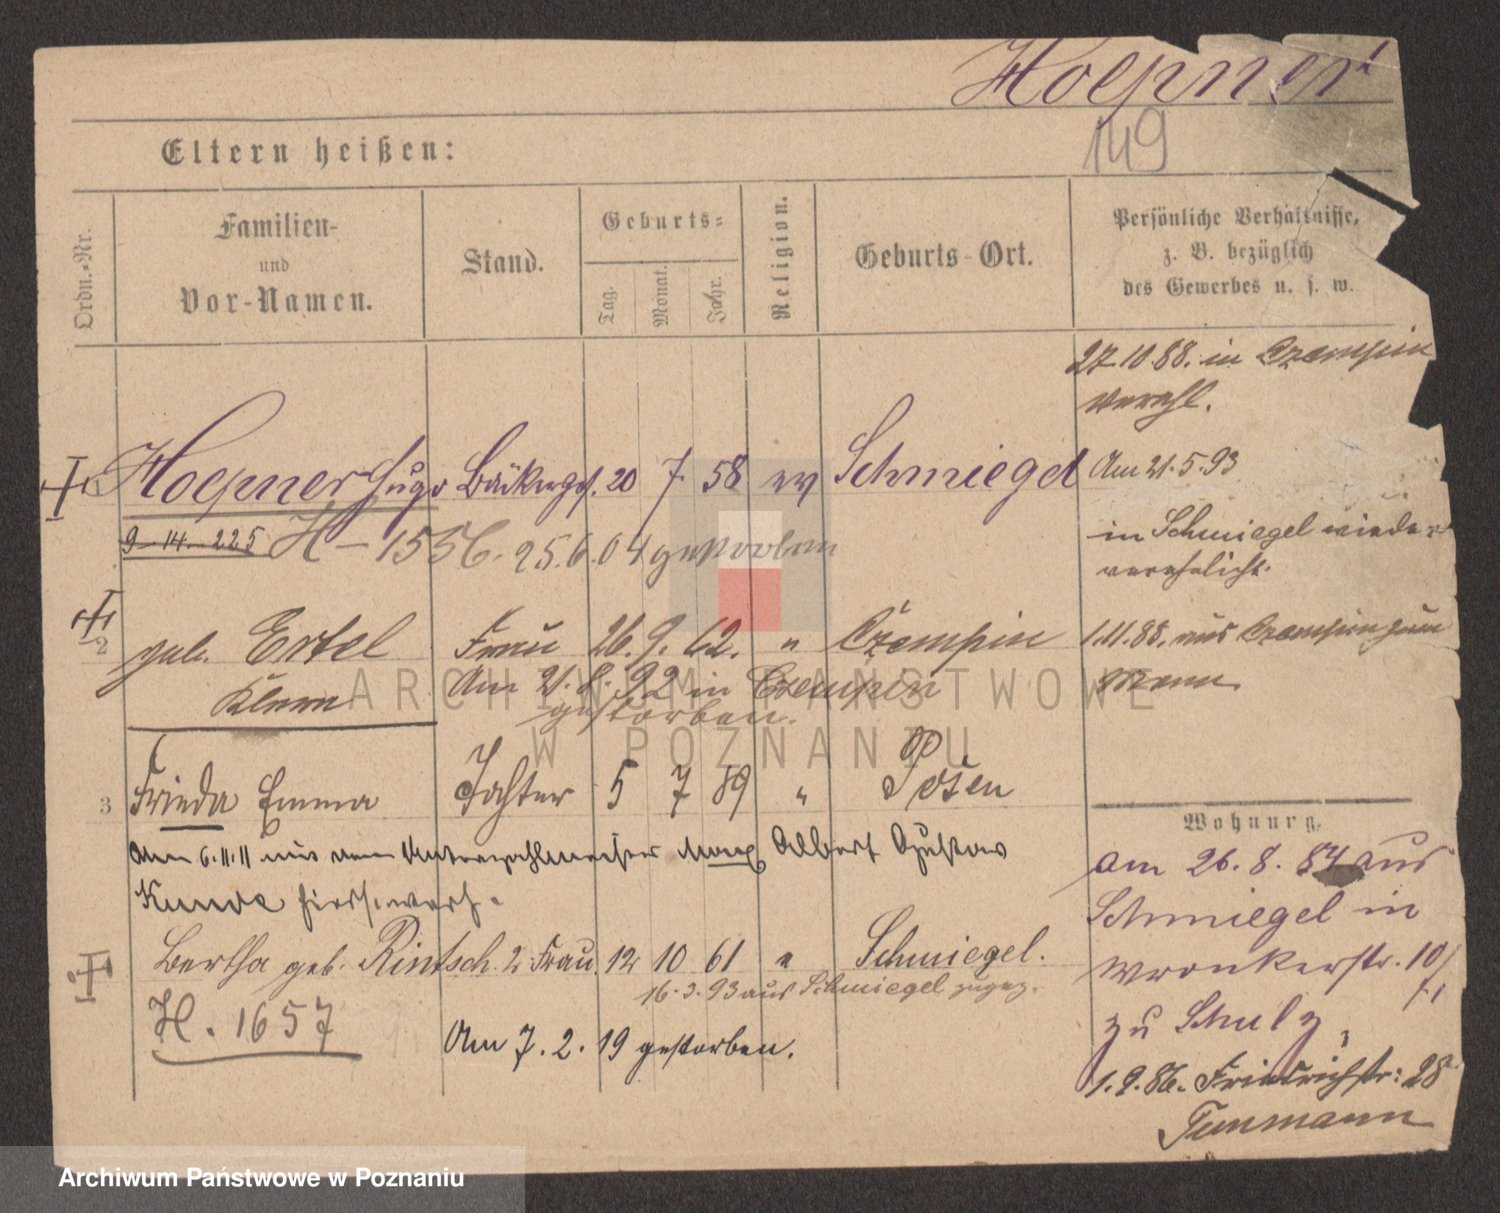 Hoepner
149
Eltern heißen:
Ordn.-Nr.
Familien-
und
Vor-Namen.
Stand.
Geburts-
Tag.
Monat.
Jahr.
Religion.
Geburts-Ort.
Persönliche Verhältnisse,
z. B. bezüglich
des Gewerbes u. s. w.
27.10.88. in Czempin
verehl.
Hoepner Hugo Bäckerges. 20 7 58 ev Schmiegel
Am 21.5.93
in Schmiegel wieder
verehelicht.
9-14-225 H-1556. 25.6.04 gestorben
2 geb. Ertel Frau 26. 9. 62. " Czempin
1.11.88. aus Czempin zum
Mann
Am 21.8.92 in Czempin
gestorben.
3 Frieda Emma Tochter 5 7 89 " Posen
Am 6.11.11 mit dem Unterzahlmeister Max Albert Gustav
Kunde hierselbst verh.
Bertha geb. Rintsch 2. Frau 12 10 61 " Schmiegel.
16.3.93 aus Schmiegel zugez.
H. 1657
Am 7.2.19 gestorben.
Wohnung.
am 26.8.84 aus
Schmiegel in
Wronkerstr. 10/
zu Schulz
1.9.86. Friedrichstr: 28
ARCHIWUM PAŃSTWOWE
W POZNANIU
Archiwum Państwowe w Poznaniu